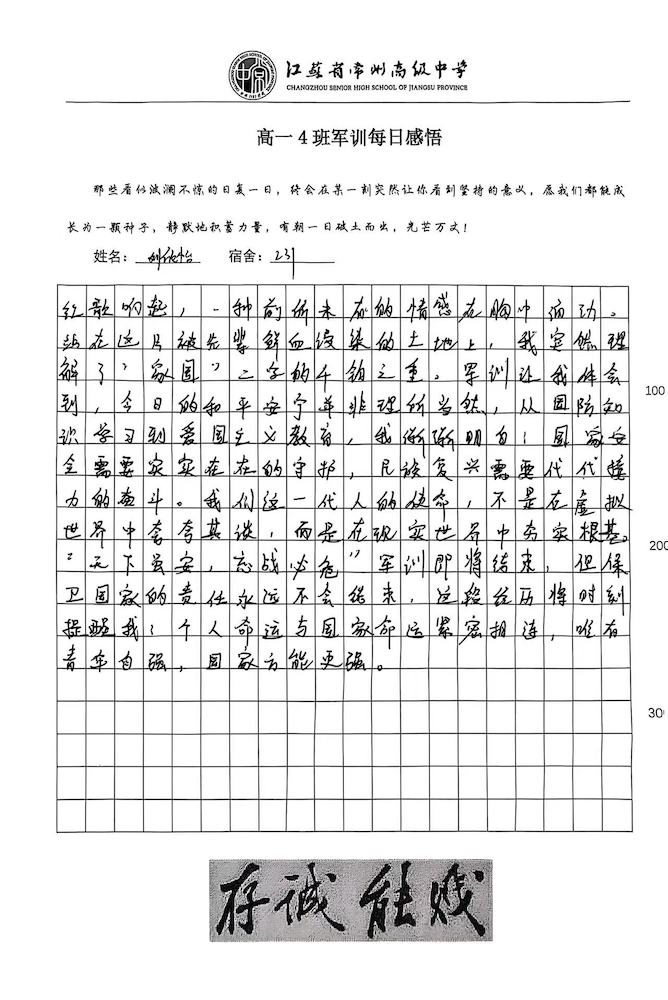 江苏省常州高级中学
CHANGZHOU SENIOR HIGH SCHOOL OF JIANGSU PROVINCE
高一4班军训每日感悟
那些看似波澜不惊的日复一日，终会在某一刻突然让你看到坚持的意义，愿我们都能成
长为一颗种子，静默地积蓄力量，有朝一日破土而出，光芒万丈！
姓名： 宿舍：231
红歌响起，一种前所未有的情感在胸中涌动。
站在这片被先辈鲜血浸染的土地上，我实际理
解了“家国”二字的千钧之重。军训让我体会
到，今日的和平安宁并非理所当然，从国防知
识学习到爱国主义教育，我渐渐明白：国家安
全需要实实在在的守护，民族复兴需要代代接
力的奋斗。我们这一代人的使命，不是在虚拟
世界中夸夸其谈，而是在现实世界中夯实根基。
“天下虽安，忘战必危”军训即将结束，但保
卫国家的责任永远不会结束，这段经历将时刻
提醒我：个人命运与国家命运紧密相连，唯有
青年自强，国家方能更强。
100
200
30
存诚能贱